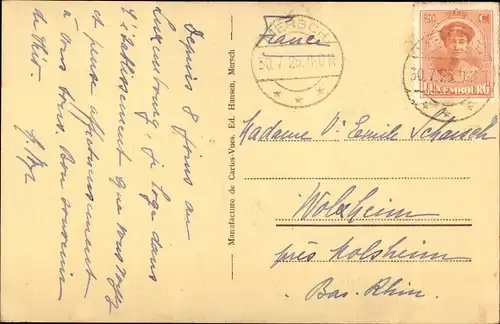 Depuis 8 jours au
Luxembourg, je loge dans
l'établissement que vous voyez
et pense affectueusement
à vous tous. Bon souvenir
de
Manufacture de Cartes-Vues. Ed. Hansen, Mersch
France
MERSCH
30.7.25
50 C
LUXEMBOURG
30.7.25
Madame Vve Emile
Wolxheim
près Molsheim
Bas-Rhin.